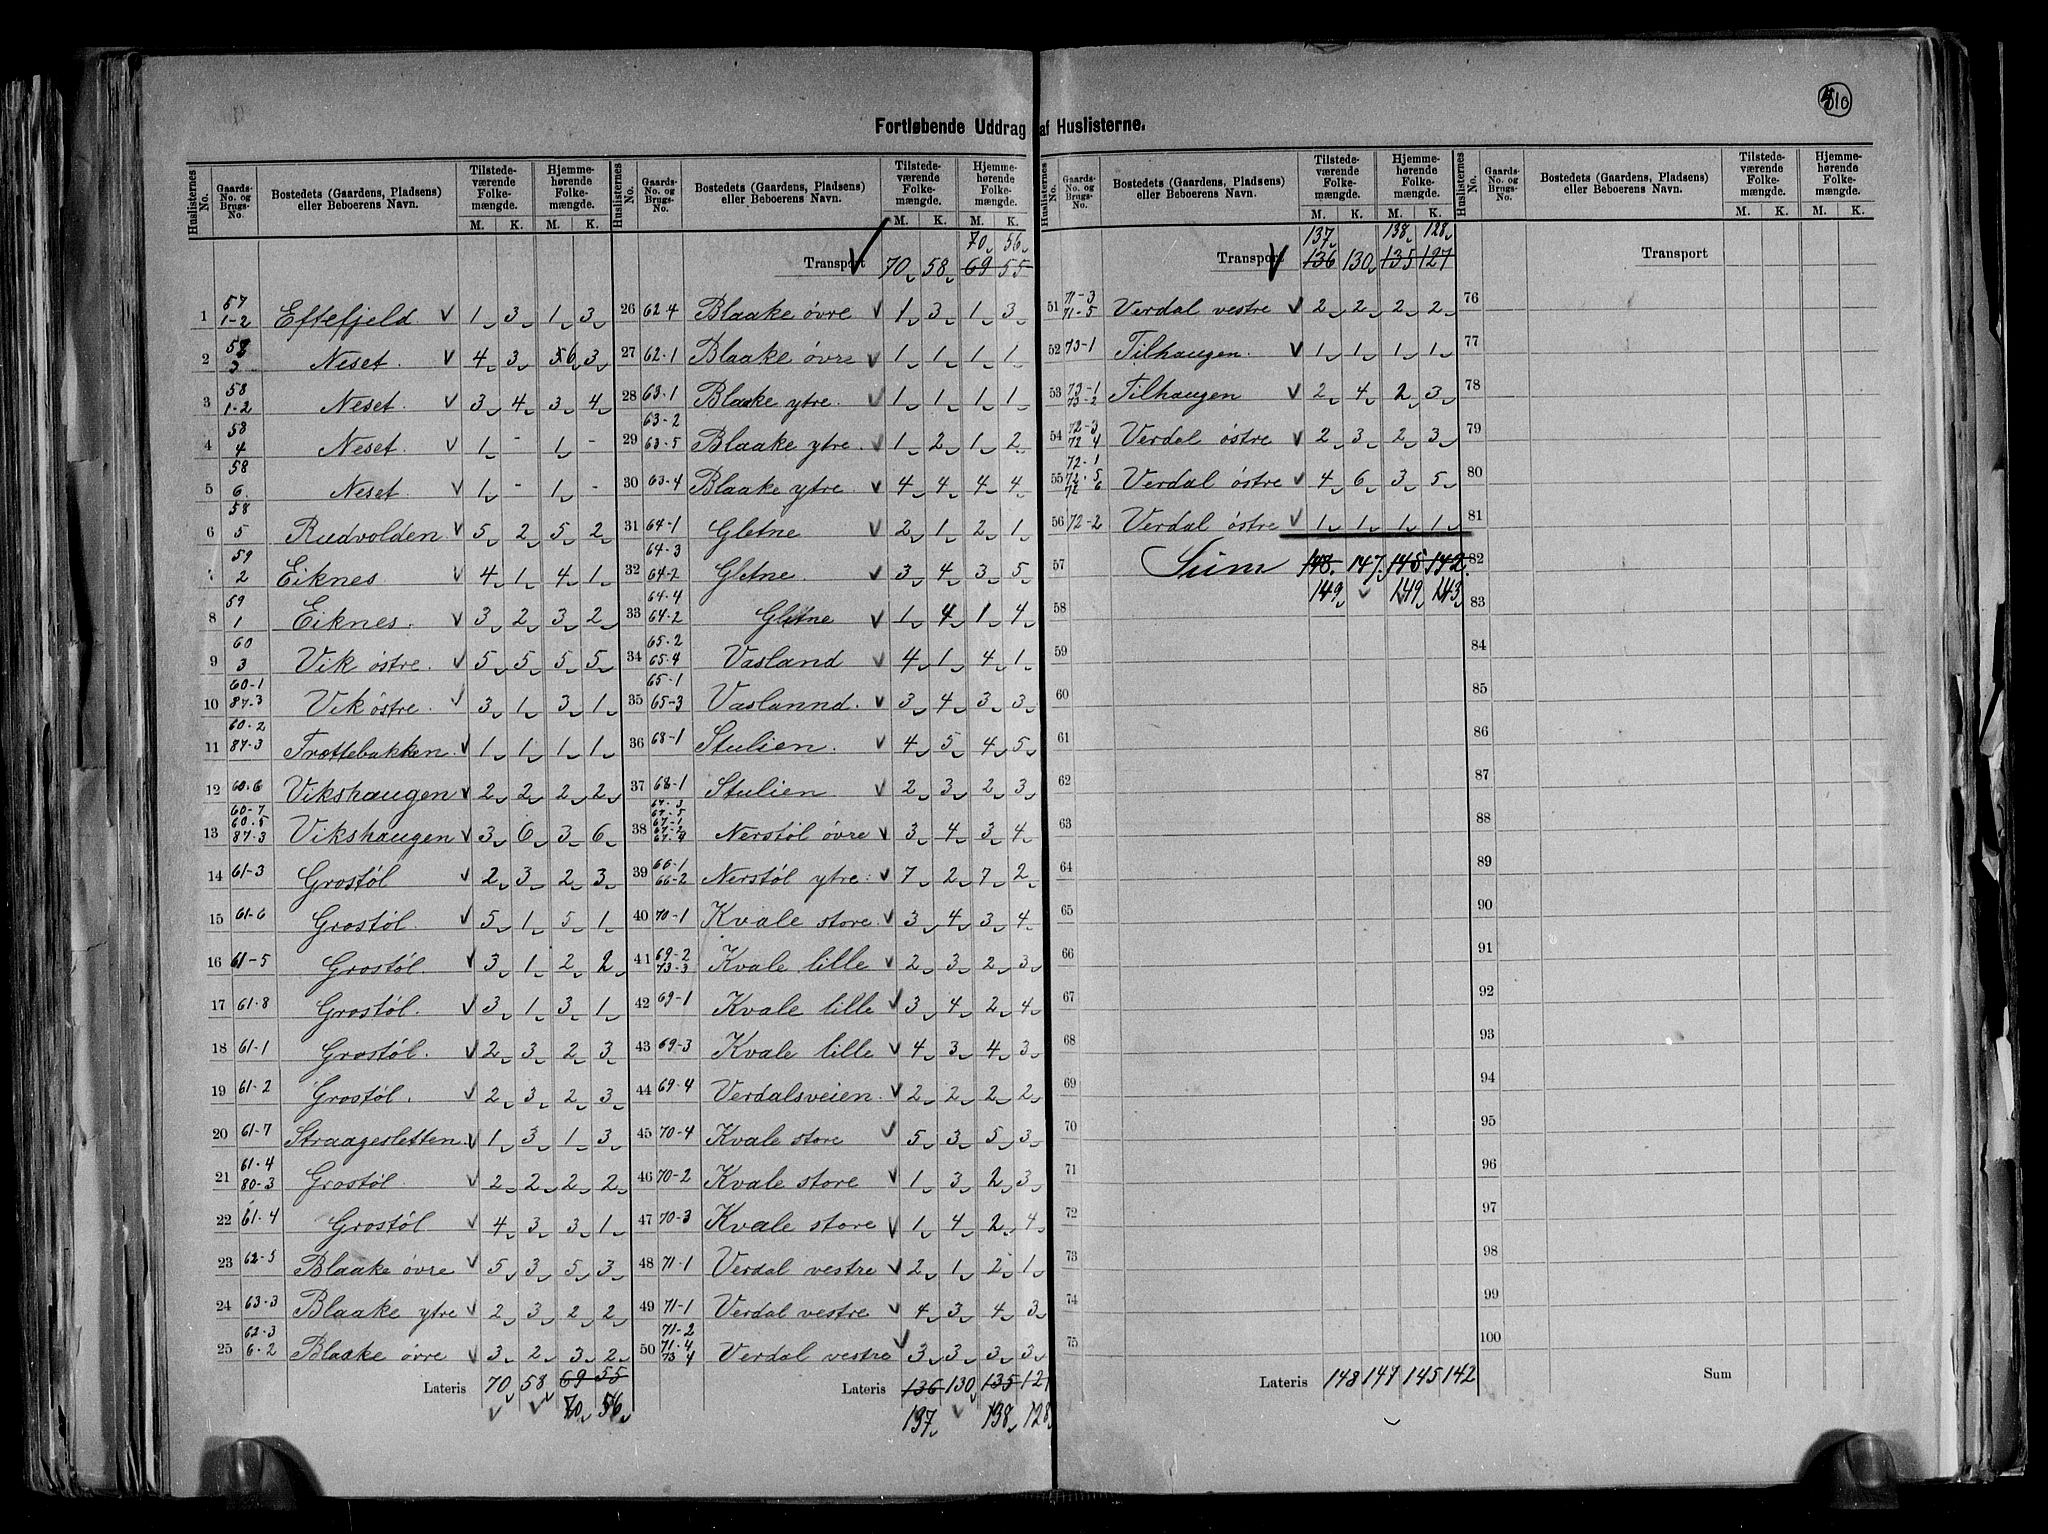 510
Fortløbende Uddrag af Huslisterne.
Huslisternes No. | Gaards-No. og Brugs-No. | Bostedets (Gaardens, Pladsens) eller Beboerens Navn. | Tilstedeværende Folkemængde. M. K. | Hjemmehørende Folkemængde. M. K.
1 57 1-2 Eftefjeld 1 3 1 3
2 58 3 Neset. 4 3 6 3
3 58 1-2 Neset. 3 4 3 4
4 58 4 Neset. 1 - 1 -
5 58 6. Neset. 1 - 1 -
6 58 5 Rudvolden 5 2 5 2
7 59 2 Eiknes 4 1 4 1
8 59 1 Eiknes. 3 2 3 2
9 60 3 Vik østre. 5 5 5 5
10 60-1 87-3 Vik østre. 3 1 3 1
11 60-2 87-3 Trættebakken. 1 1 1 1
12 60-6 Vikshaugen 2 2 2 2
13 60-7 60-5 87-3 Vikshaugen 3 6 3 6
14 61-3 Grostøl 2 3 2 3
15 61-6 Grostøl. 5 1 5 1
16 61-5 Grostøl. 3 1 2 2
17 61-8 Grostøl. 3 1 3 1
18 61-1 Grostøl. 2 3 2 3
19 61-2 Grostøl. 2 3 2 3
20 61-7 Straagesletten. 1 3 1 3
21 61-4 80-3 Grostøl. 2 2 2 2
22 61-4 Grostøl 4 3 3 1
23 62-5 Blaake øvre 5 3 5 3
24 63-3 Blaake ytre 2 3 2 2
25 62-3 6-2 Blaake øvre 3 2 3 2
Lateris 70 58 69 55
70 56
Huslisternes No. | Gaards-No. og Brugs-No. | Bostedets (Gaardens, Pladsens) eller Beboerens Navn. | Tilstedeværende Folkemængde. M. K. | Hjemmehørende Folkemængde. M. K.
70 56
Transport 70 58 69 55
26 62-4 Blaake øvre 1 3 1 3
27 62-1 Blaake øvre 1 1 1 1
28 63-1 Blaake ytre. 1 1 1 1
29 63-2 63-5 Blaake ytre. 1 2 1 2
30 63-4 Blaake ytre 4 4 4 4
31 64-1 Gletne 2 1 2 1
32 64-3 64-2 Gletne. 3 4 3 5
33 64-4 64-2 Gletne 1 4 1 4
34 65-2 65-4 Vasland 4 1 4 1
35 65-1 65-3 Vaslannd. 3 4 3 3
36 68-1 Stulien. 4 5 4 5
37 68-1 Stulien 2 3 2 3
38 67-3 67-5 67-1 67-2 67-4 Nerstøl øvre 3 4 3 4
39 66-1 66-2 Nerstøl ytre. 7 2 7 2
40 70-1 Kvale store. 3 4 3 4
41 69-2 73-3 Kvale lille 2 3 2 3
42 69-1 Kvale lille 3 4 2 4
43 69-3 Kvale lille 4 3 4 3
44 69-4 Verdalsveien. 2 2 2 2
45 70-4 Kvale store 5 3 5 3
46 70-2 Kvale store 1 3 2 3
47 70-3 Kvale store 1 4 2 4
48 71-1 Verdal vestre 2 1 2 1
49 71-1 Verdal vestre 4 3 4 3
50 71-2 71-4 73-4 Verdal vestre 3 3 3 3
Lateris 136 130 135 127
137 138 128
Huslisternes No. | Gaards-No. og Brugs-No. | Bostedets (Gaardens, Pladsens) eller Beboerens Navn. | Tilstedeværende Folkemængde. M. K. | Hjemmehørende Folkemængde. M. K.
137 138 128
Transport 136 130 135 127
51 71-3 71-5 Verdal vestre 2 2 2 2
52 73-1 Tilhaugen. 1 1 1 1
53 73-1 73-2 Tilhaugen 2 4 2 3
54 72-3 72-4 Verdal østre 2 3 2 3
55 72-1 72-5 72-6 Verdal østre 4 6 3 5
56 72-2 Verdal østre 1 1 1 1
57 Sum 148. 147. 145 142.
58 149 149 143
59
60
61
62
63
64
65
66
67
68
69
70
71
72
73
74
75
Lateris 148 147 145 142
Huslisternes No. | Gaards-No. og Brugs-No. | Bostedets (Gaardens, Pladsens) eller Beboerens Navn. | Tilstedeværende Folkemængde. M. K. | Hjemmehørende Folkemængde. M. K.
Transport
76
77
78
79
80
81
82
83
84
85
86
87
88
89
90
91
92
93
94
95
96
97
98
99
100
Sum